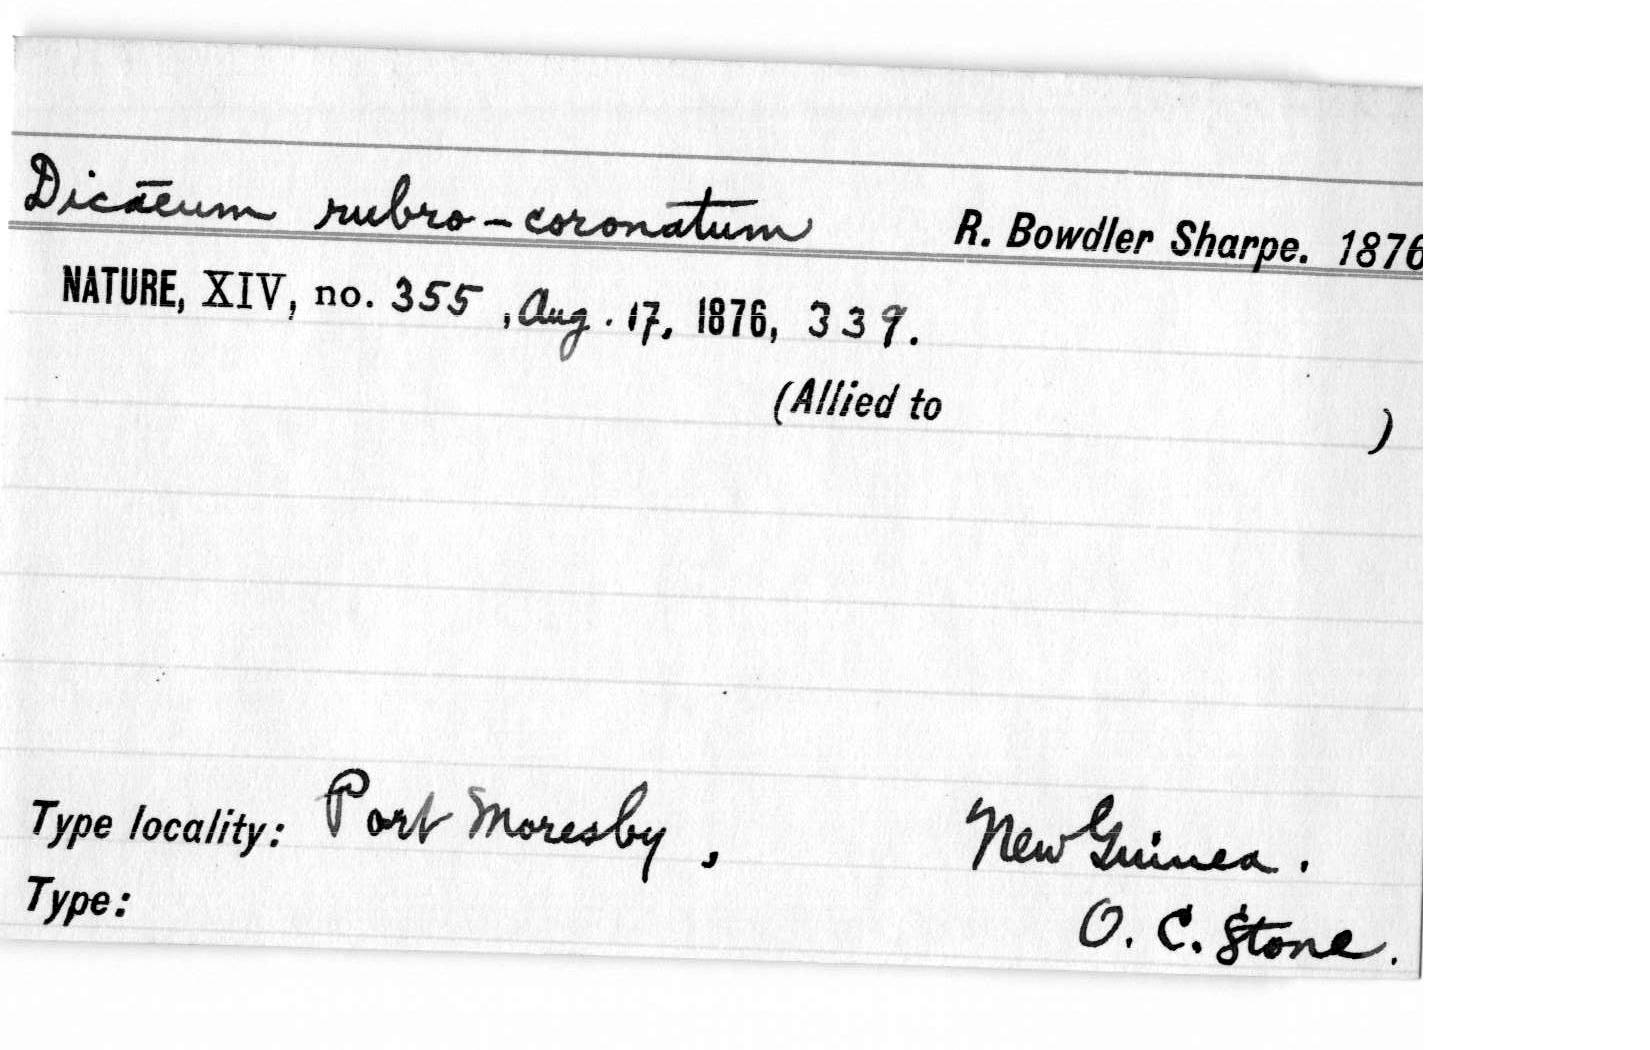 Dicaeum rubro-coronatum R. Bowdler Sharpe. 1876
NATURE, XIV, no. 355, Aug. 17, 1876, 339.
(Allied to )
Type locality: Port Moresby, New Guinea.
Type: O. C. Stone.